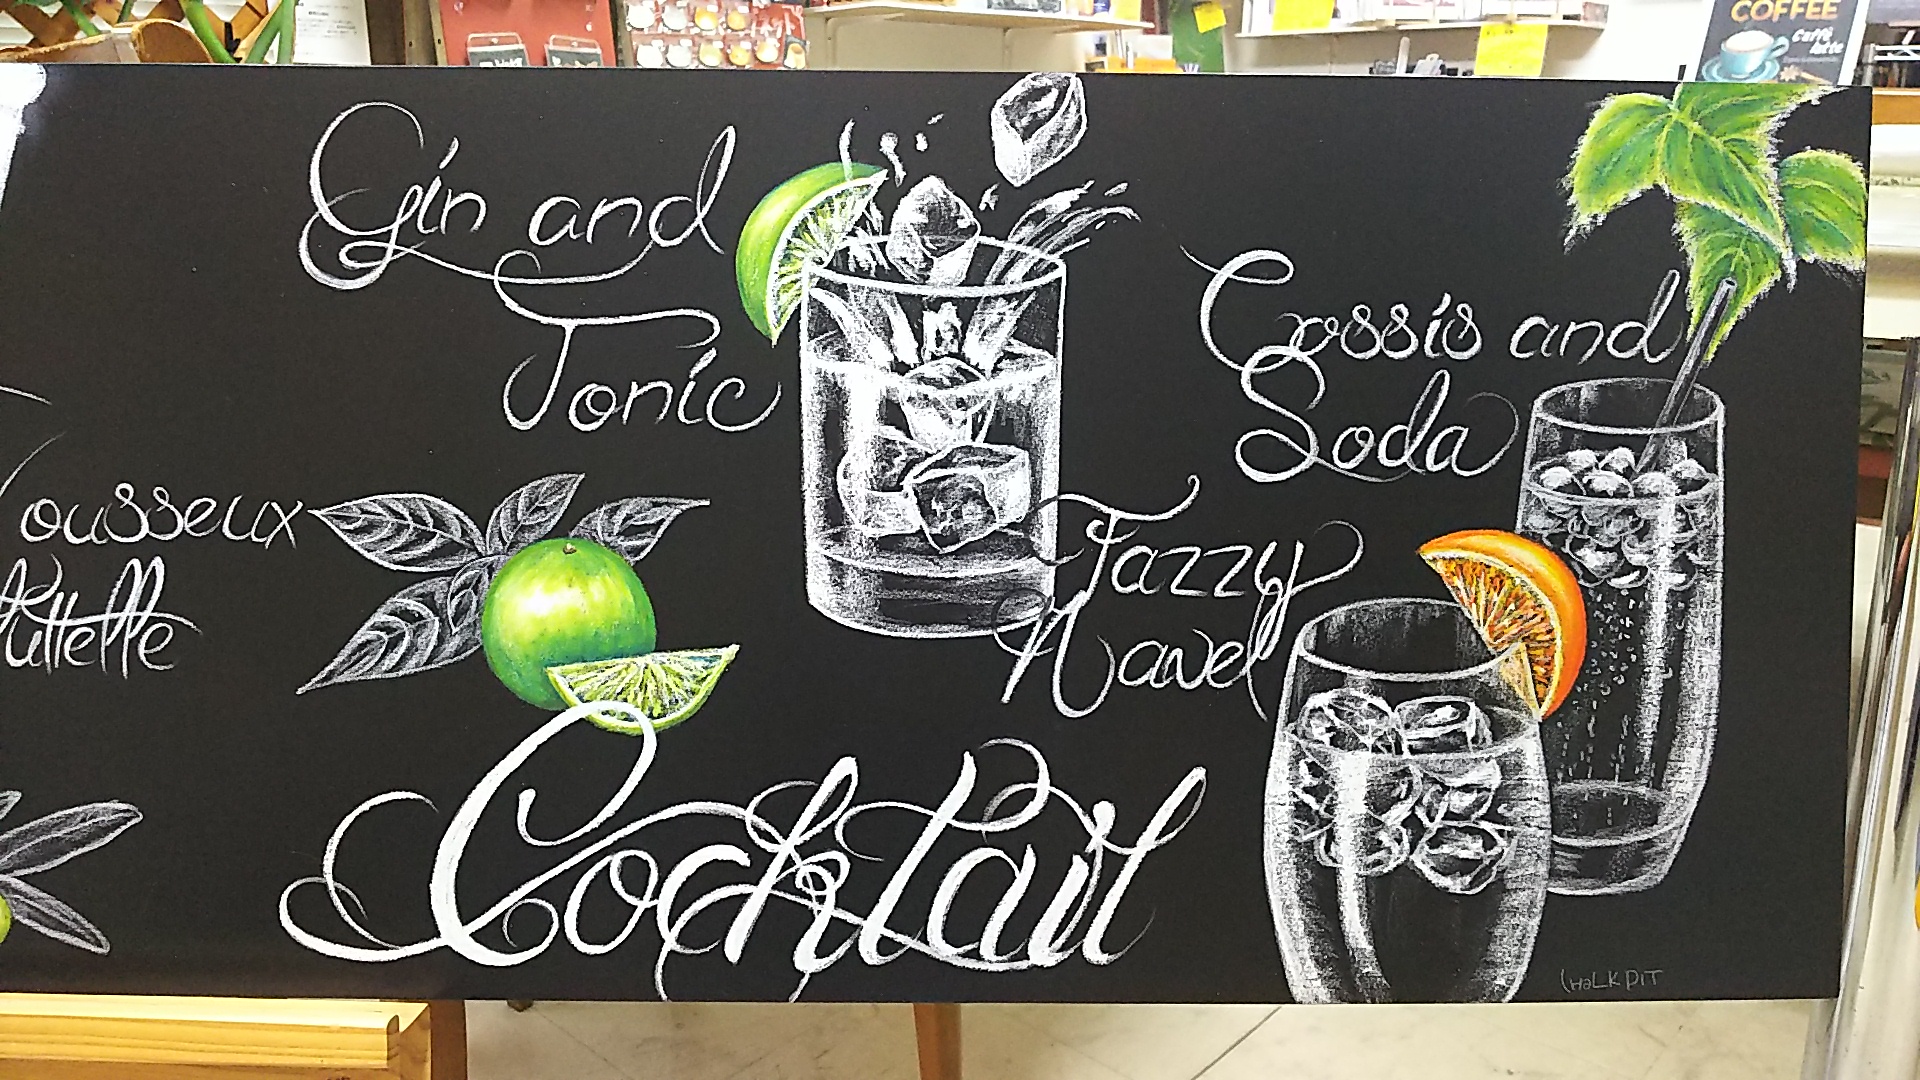 COFFEE
Caffè
latte
Gin and
Tonic
Cassis and
Soda
ousseux
Fazzy
Navel
Cocktail
CHALK PIT